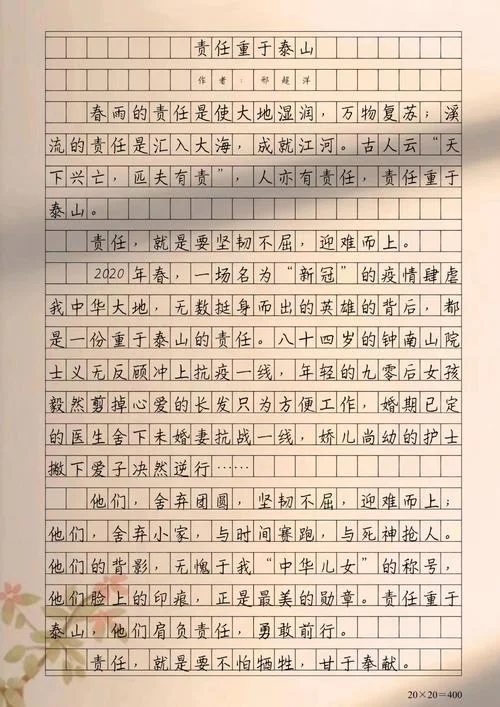 责任重于泰山
作者：邢超洋
春雨的责任是使大地湿润，万物复苏；溪
流的责任是汇入大海，成就江河。古人云“天
下兴亡，匹夫有责”，人亦有责任，责任重于
泰山。
责任，就是要坚韧不屈，迎难而上。
2020年春，一场名为“新冠”的疫情肆虐
我中华大地，无数挺身而出的英雄的背后，都
是一份重于泰山的责任。八十四岁的钟南山院
士义无反顾冲上抗疫一线，年轻的九零后女孩
毅然剪掉心爱的长发只为方便工作，婚期已定
的医生舍下未婚妻抗战一线，娇儿尚幼的护士
撇下爱子决然逆行……
他们，舍弃团圆，坚韧不屈，迎难而上；
他们，舍弃小家，与时间赛跑，与死神抢人。
他们的背影，无愧于我“中华儿女”的称号，
他们脸上的印痕，正是最美的勋章。责任重于
泰山，他们肩负责任，勇敢前行。
责任，就是要不怕牺牲，甘于奉献。
20×20=400